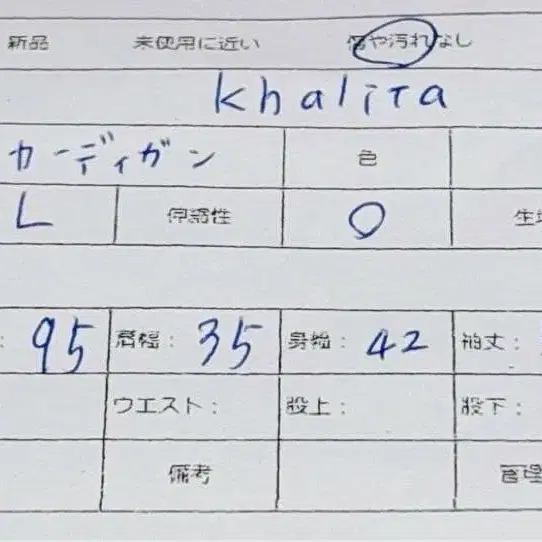 新品 未使用に近い 傷や汚れなし
khalita
カーディガン 色
L 伸縮性 O 生地
: 95 肩幅: 35 身幅: 42 袖丈:
ウエスト: 股上: 股下:
備考 管理